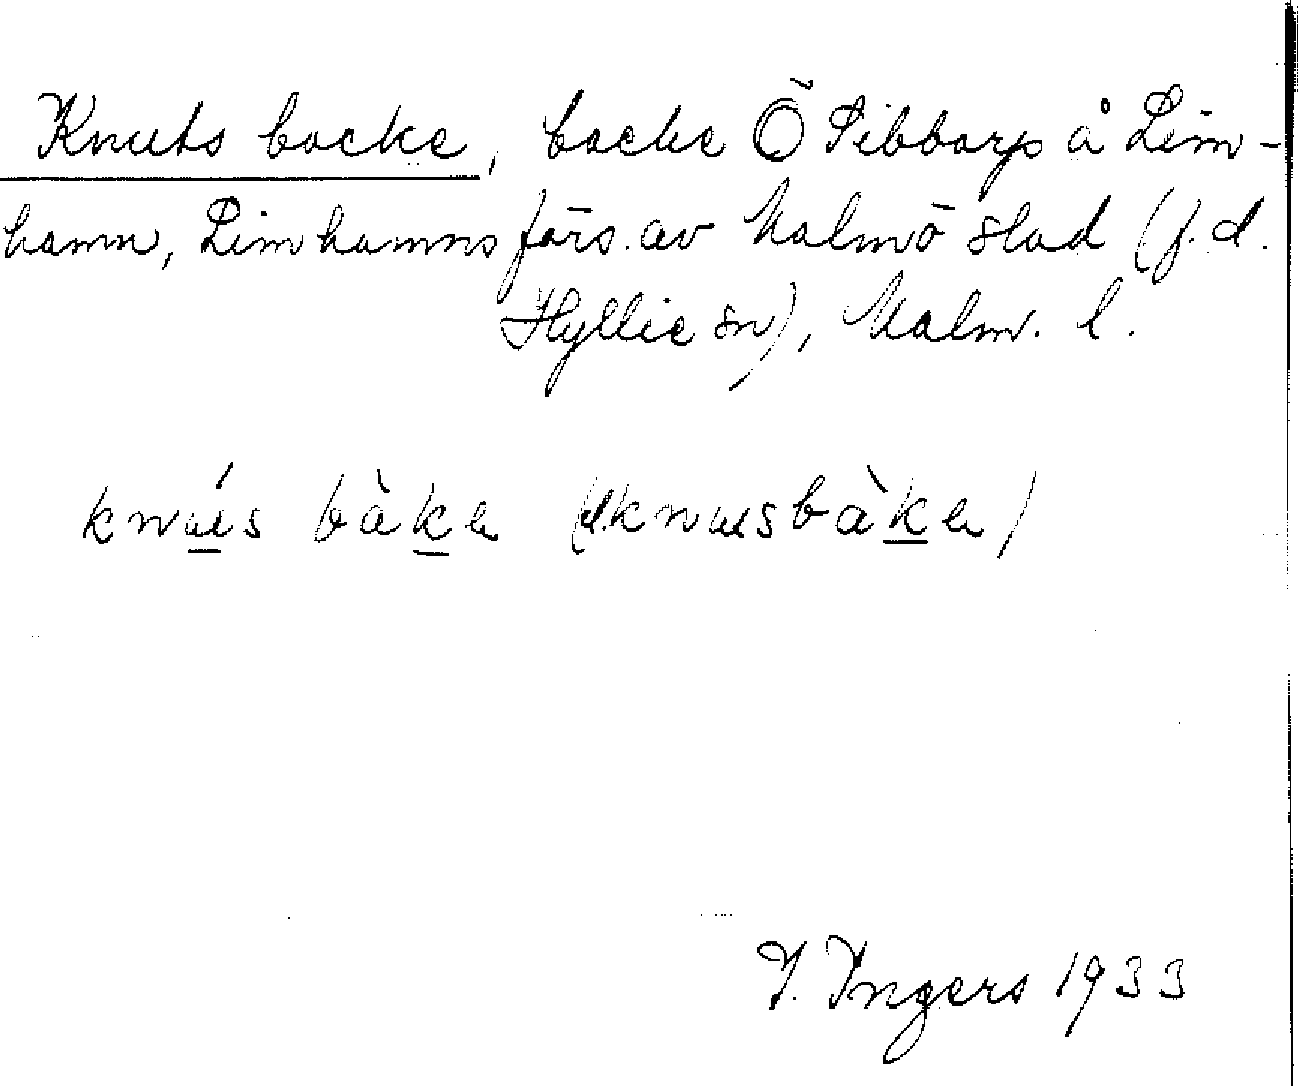 Knuts backe, backe Ö Sibbarp å Lim-
hamn, Limhamns förs. av Malmö stad (f.d.
Hyllie sn), Malm. l.
knús bàkə (knusbàkə)
I. Ingers 1933